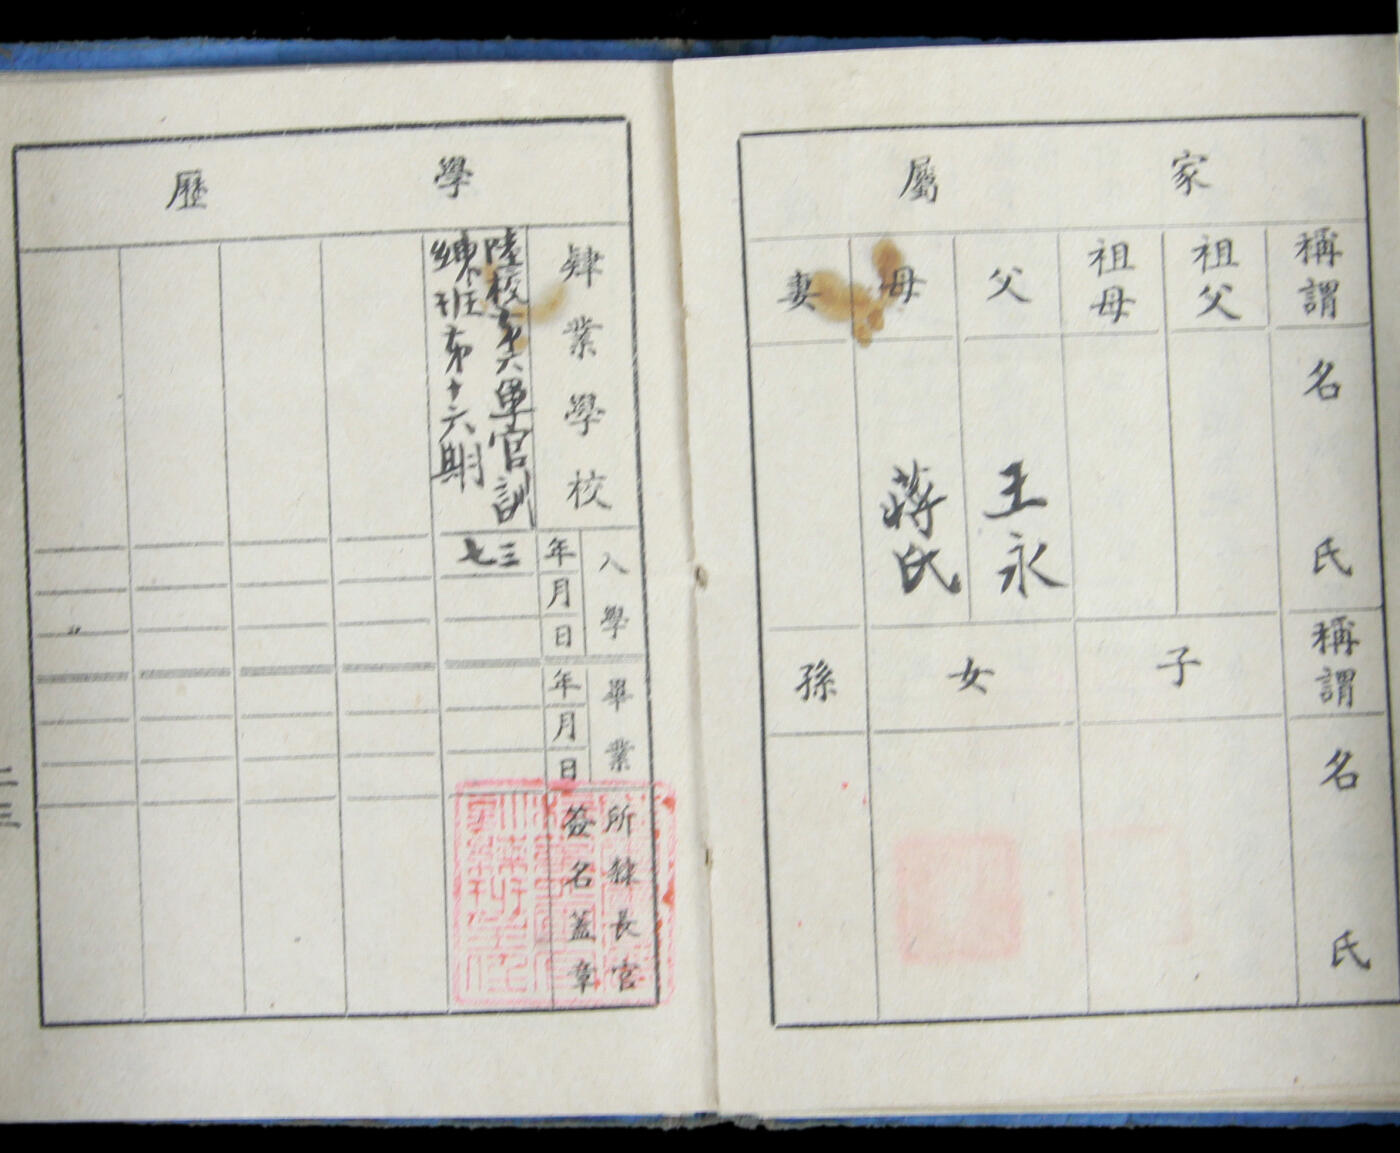 家屬
稱謂
祖父
祖母
父
母
妻
名氏
王永
蔣氏
稱謂
子
女
孫
名氏
學歷
肄業學校
陸校第六軍官訓
練班第十六期
入學
年
三七
月
日
畢業
年
月
日
所隸長官
簽名蓋章
二三